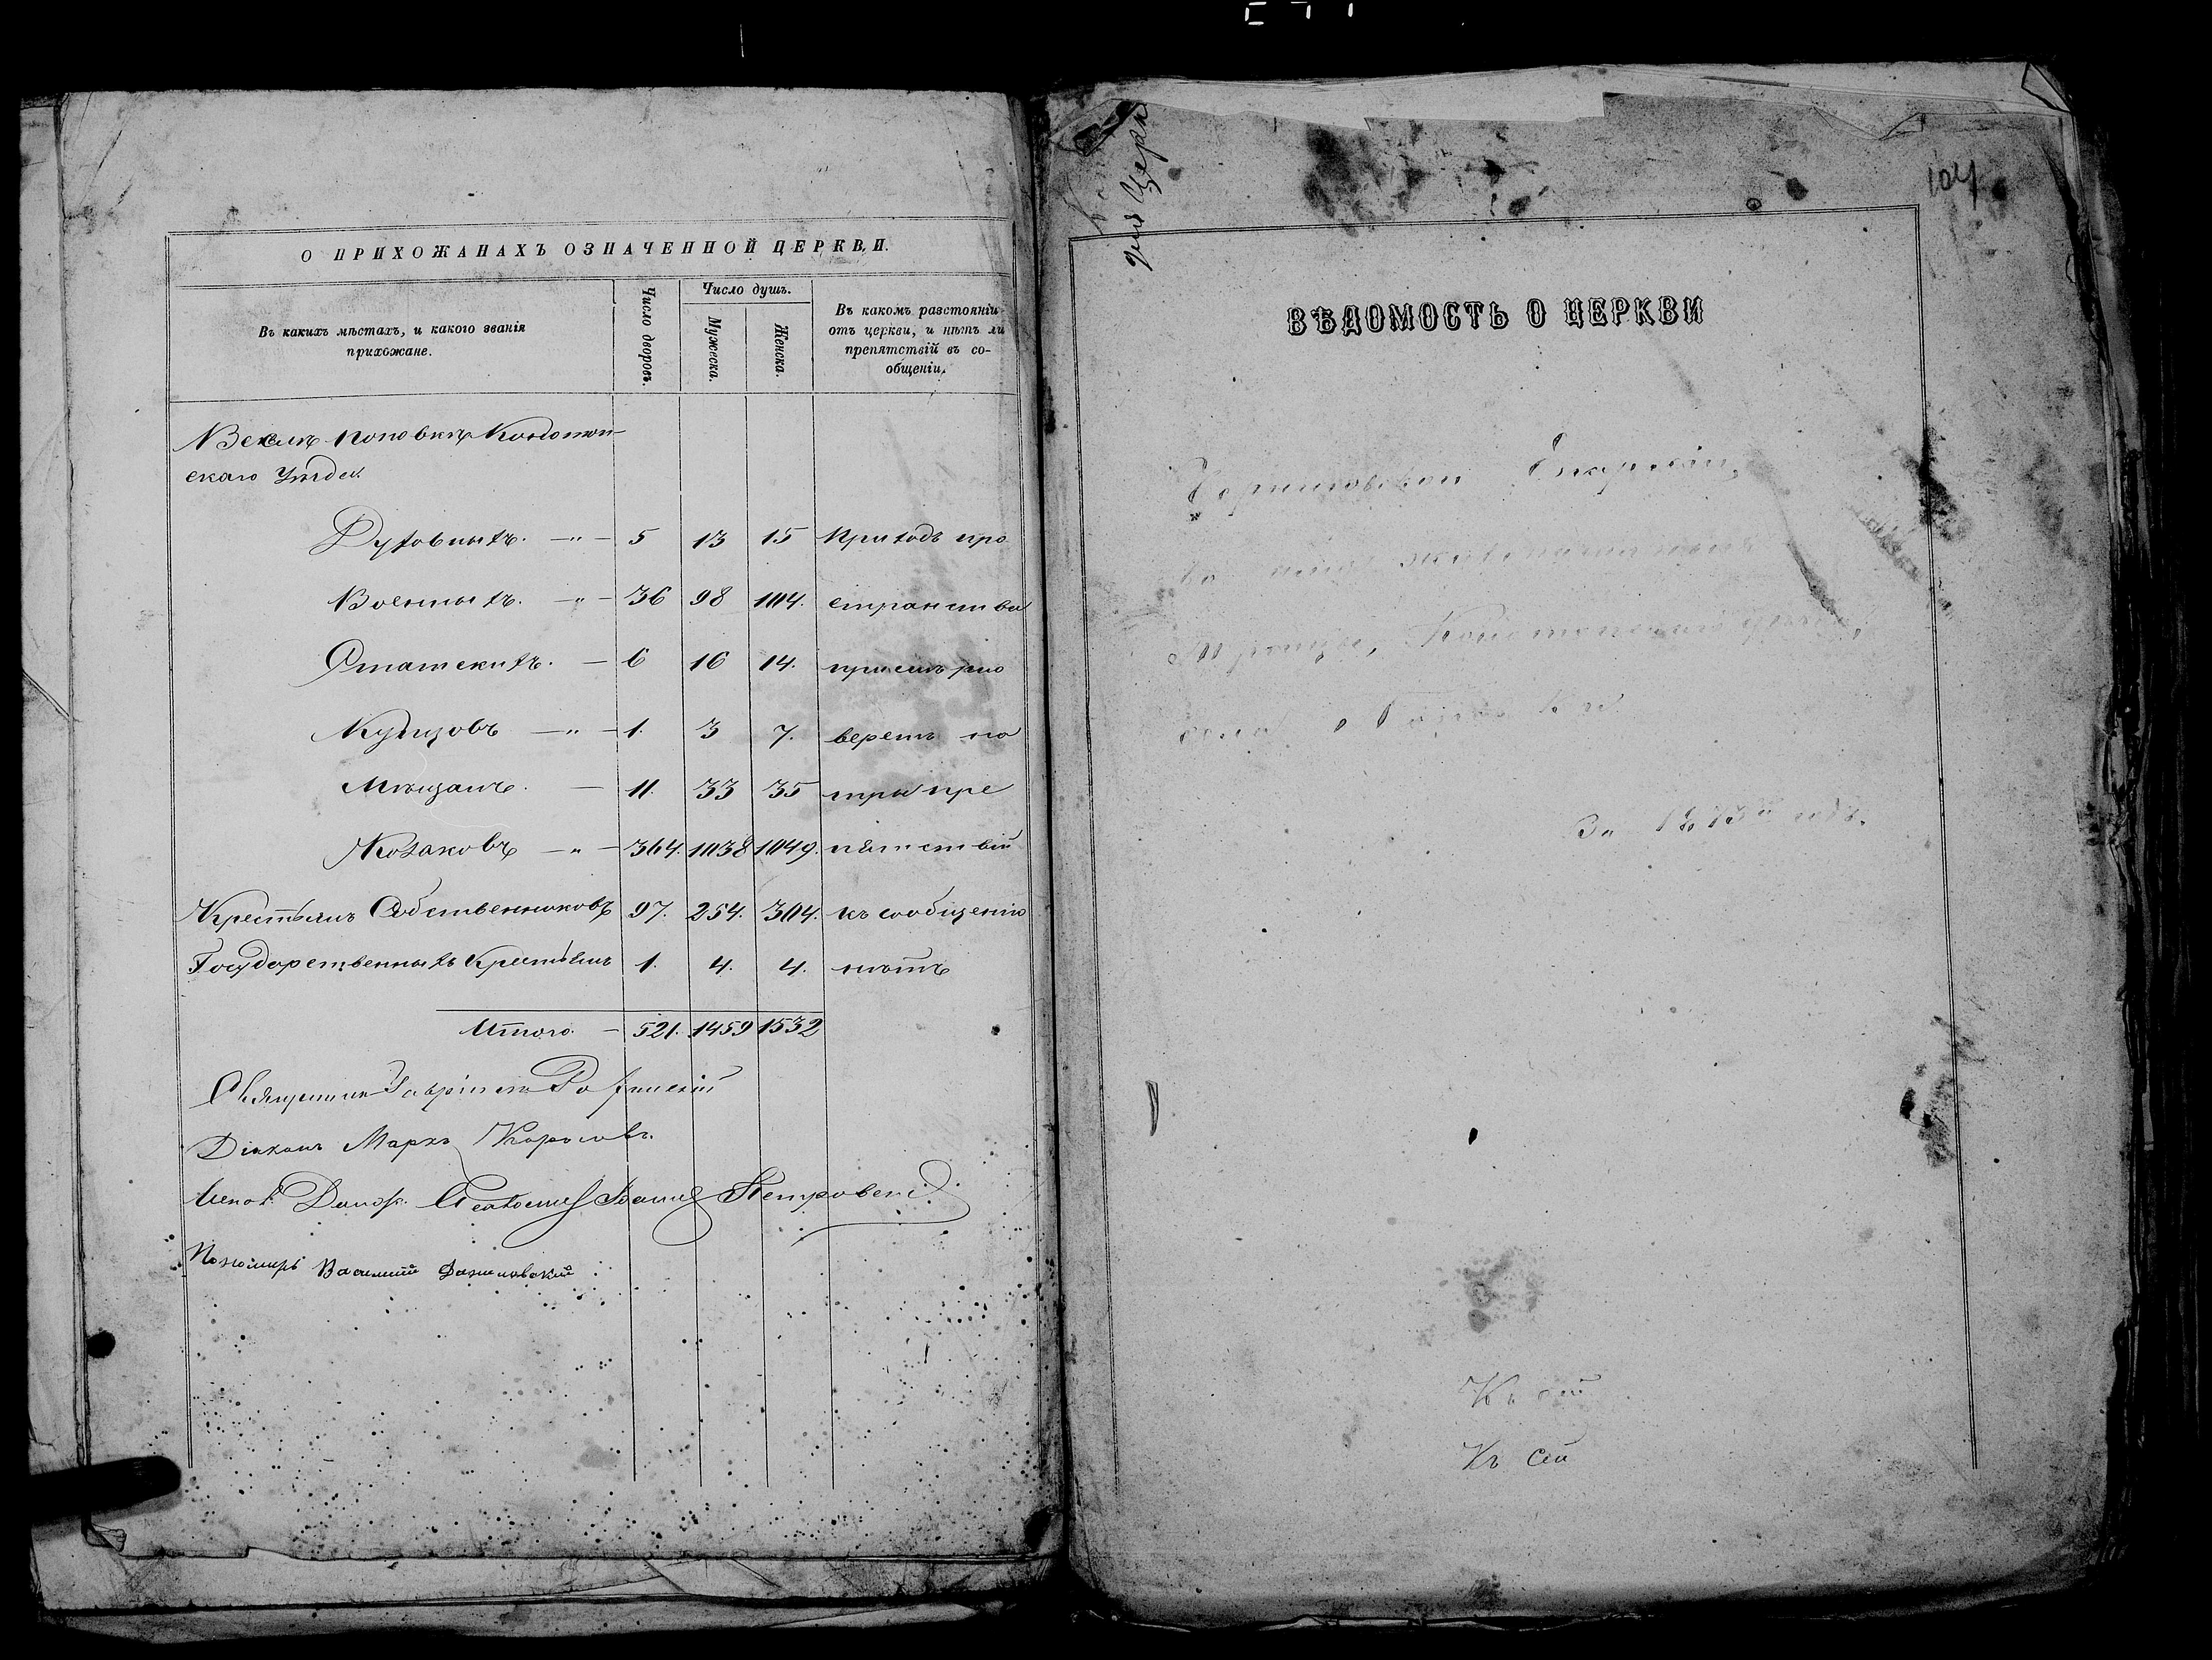 О ПРИХОЖАНАХЪ ОЗНАЧЕННОЙ ЦЕРКВИ.
Въ какихъ мѣстахъ, и какого званія прихожане.
Число дворовъ.
Число душъ.
Мужеска.
Женска.
Въ какомъ разстояніи
отъ церкви, и нѣтъ ли
препятствій въ со-
общеніи.
В селѣ Поповкѣ Конотоп-
скаго Уѣзда
Духовныхъ. — " — 5 13 15 Приходъ про
Военныхъ. — " — 36 98 104. странства
Статскихъ. — 6 16 14. примѣрно
Купцовъ — " — 1. 3 7. верстъ на
Мѣщанъ. — 11. 33 35 три пре
Козаковъ — " — 364. 1038 1049. пятствій
Крестьянъ Собственниковъ 97. 254. 304. къ сообщенію
Государственныхъ Крестьянъ 1. 4. 4. нѣтъ
Итого. — 521. 1459 1532
Священникъ Гавріилъ
Діаконъ Маркъ
Петровскій
Пономарь Василий
104
Церкв
ВѢДОМОСТЬ О ЦЕРКВИ
Черниговской Епархіи,
Троицы, Конотопскаго уѣзда,
села Поповки
За 1875й годъ.
Къ сей
Къ сей